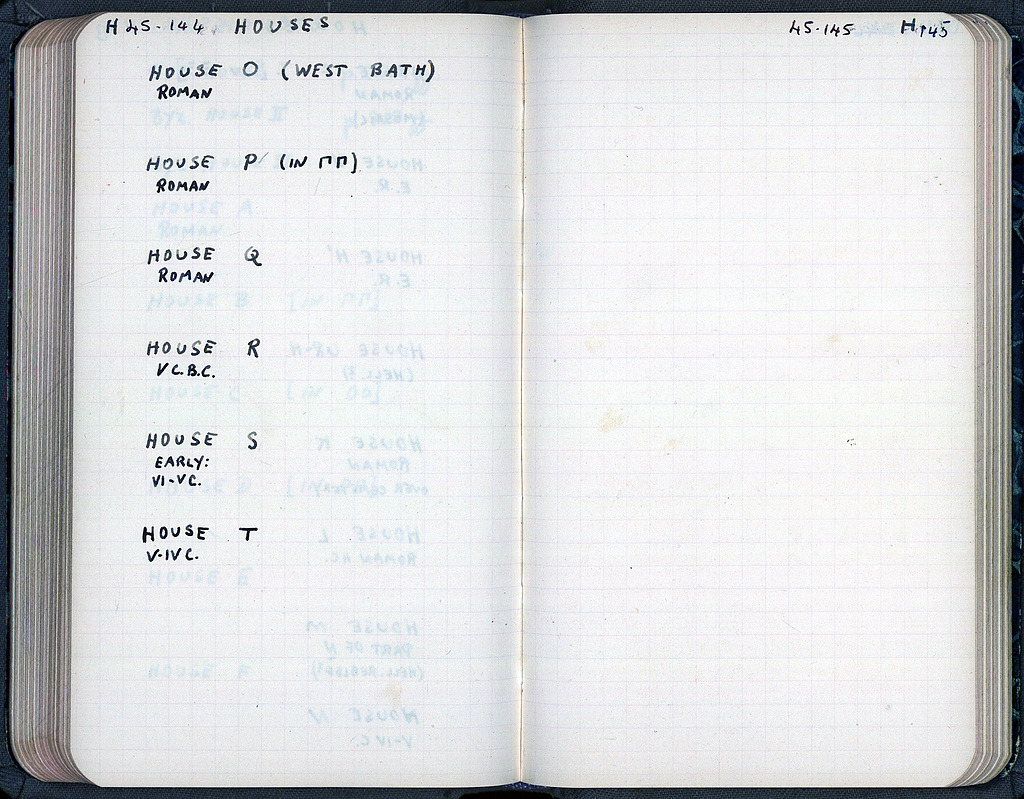 H 45-144. HOUSES
HOUSE O (WEST BATH)
ROMAN
HOUSE P (IN ΠΠ)
ROMAN
HOUSE Q
ROMAN
HOUSE R
V C.B.C.
HOUSE S
EARLY:
VI-V C.
HOUSE T
V-IV C.
45-145 H-145